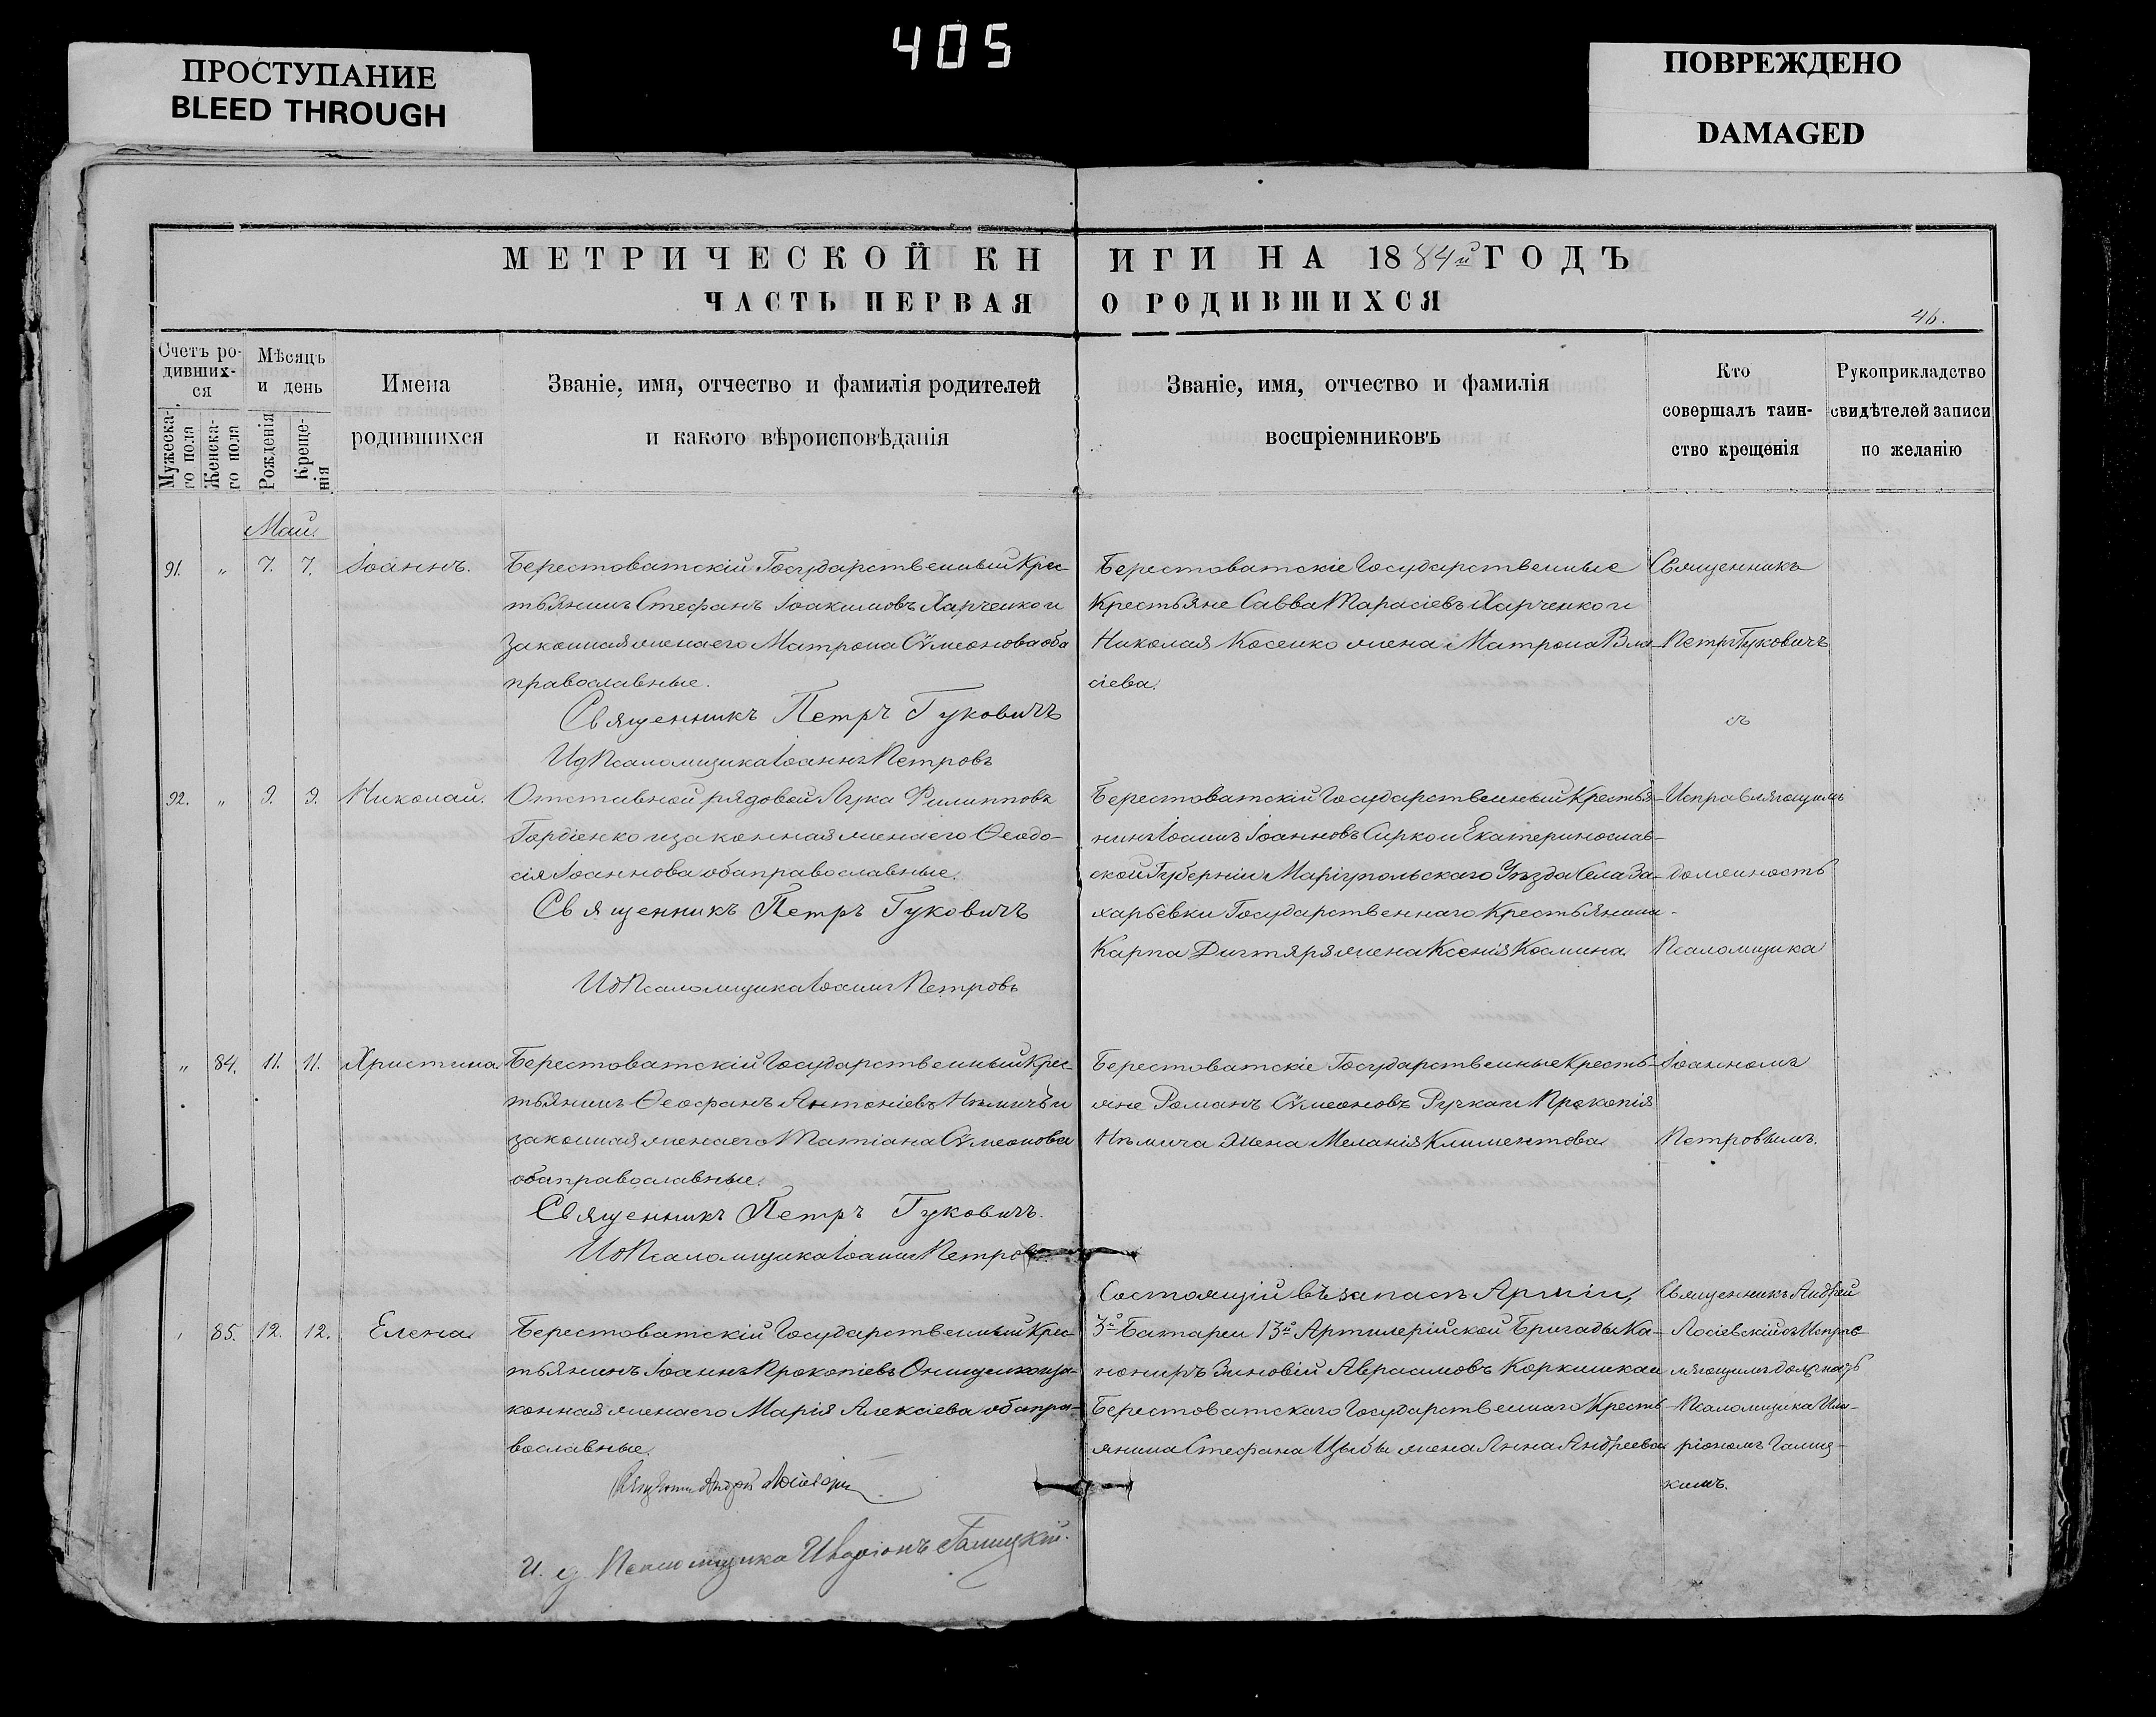 ПРОСТУПАНИЕ
BLEED THROUGH
405
ПОВРЕЖДЕНО
DAMAGED
МЕТРИЧЕСКОЙ КНИГИ НА 1884й ГОДЪ
ЧАСТЬ ПЕРВАЯ О РОДИВШИХСЯ
46.
Счетъ ро-
дивших-
ся
Мужеска-
го пола
Женска-
го пола
Мѣсяцъ
и день
Рожденія
Креще-
нія
Имена
родившихся
Званіе, имя, отчество и фамилія родителей
и какого вѣроисповѣданія
Званіе, имя, отчество и фамилія
воспріемниковъ
Кто
совершалъ таин-
ство крещенія
Рукоприкладство
свидѣтелей записи
по желанію
Май.
91. " 7. 7. Іоаннъ.
Берестоватскій Государственный Крес-
тьянинъ Стефанъ Іоакимовъ Харченко и
законная жена его Матрона Сѵмеонова оба
православные.
Священникъ Петръ Гуковичъ
Ид Псаломщика Іоаннъ Петровъ
Берестоватскіе Государственные
Крестьяне Савва Тарасіевъ Харченко и
Николая Косенко жена Матрона Вла-
сіева.
Священникъ
Петръ Гуковичъ
съ
92. " 9. 9. Николай.
Отставной рядовой Лука Филипповъ
Гордіенко и законная жена его Ѳеодо-
сія Іоаннова оба православные.
Священникъ Петръ Гуковичъ
Ид Псаломщика Іоаннъ Петровъ
Берестоватскій Государственный Крестья-
нинъ Іоаннъ Іоанновъ Сирко и Екатеринослав-
ской Губерніи Маріупольскаго Уѣзда Села За-
харьевки Государственнаго Крестьянина
Карпа Дигтяря жена Ксенія Космина
Исправляющимъ
должность
Псаломщика
" 84. 11. 11. Христина.
Берестоватскій Государственный Крес-
тьянинъ Ѳеофанъ Антоніевъ Нѣмичъ и
законная жена его Татіана Сѵмеонова
оба православные.
Священникъ Петръ Гуковичъ.
Ид Псаломщика Іоаннъ Петровъ.
Берестоватскіе Государственные Кресть-
яне Романъ Сѵмеоновъ Ручка и Прокопія
Нѣмича жена Меланія Климентова
Іоанномъ
Петровымъ.
" 85. 12. 12. Елена
Берестоватскій Государственный Крес-
тьянинъ Іоаннъ Прокопіевъ Онищенко и за-
конная жена его Марія Алексіева оба пра-
вославные.
Священникъ Андрей Лосіевскій
И. д. Псаломщика Иларіонъ Галицкій.
Состоящій въ запасѣ Арміи,
3й Батареи 13й Артилерійской Бригады Ка-
нониръ Зиновій Авраамовъ Коркишка и
Берестоватскаго Государственнаго Кресть-
янина Стефана Цыбы жена Анна Андреева
Священникъ Андрей
Лосіевскій съ Исправ-
ляющимъ должность
Псаломщика Ила-
ріономъ Галиц-
кимъ.